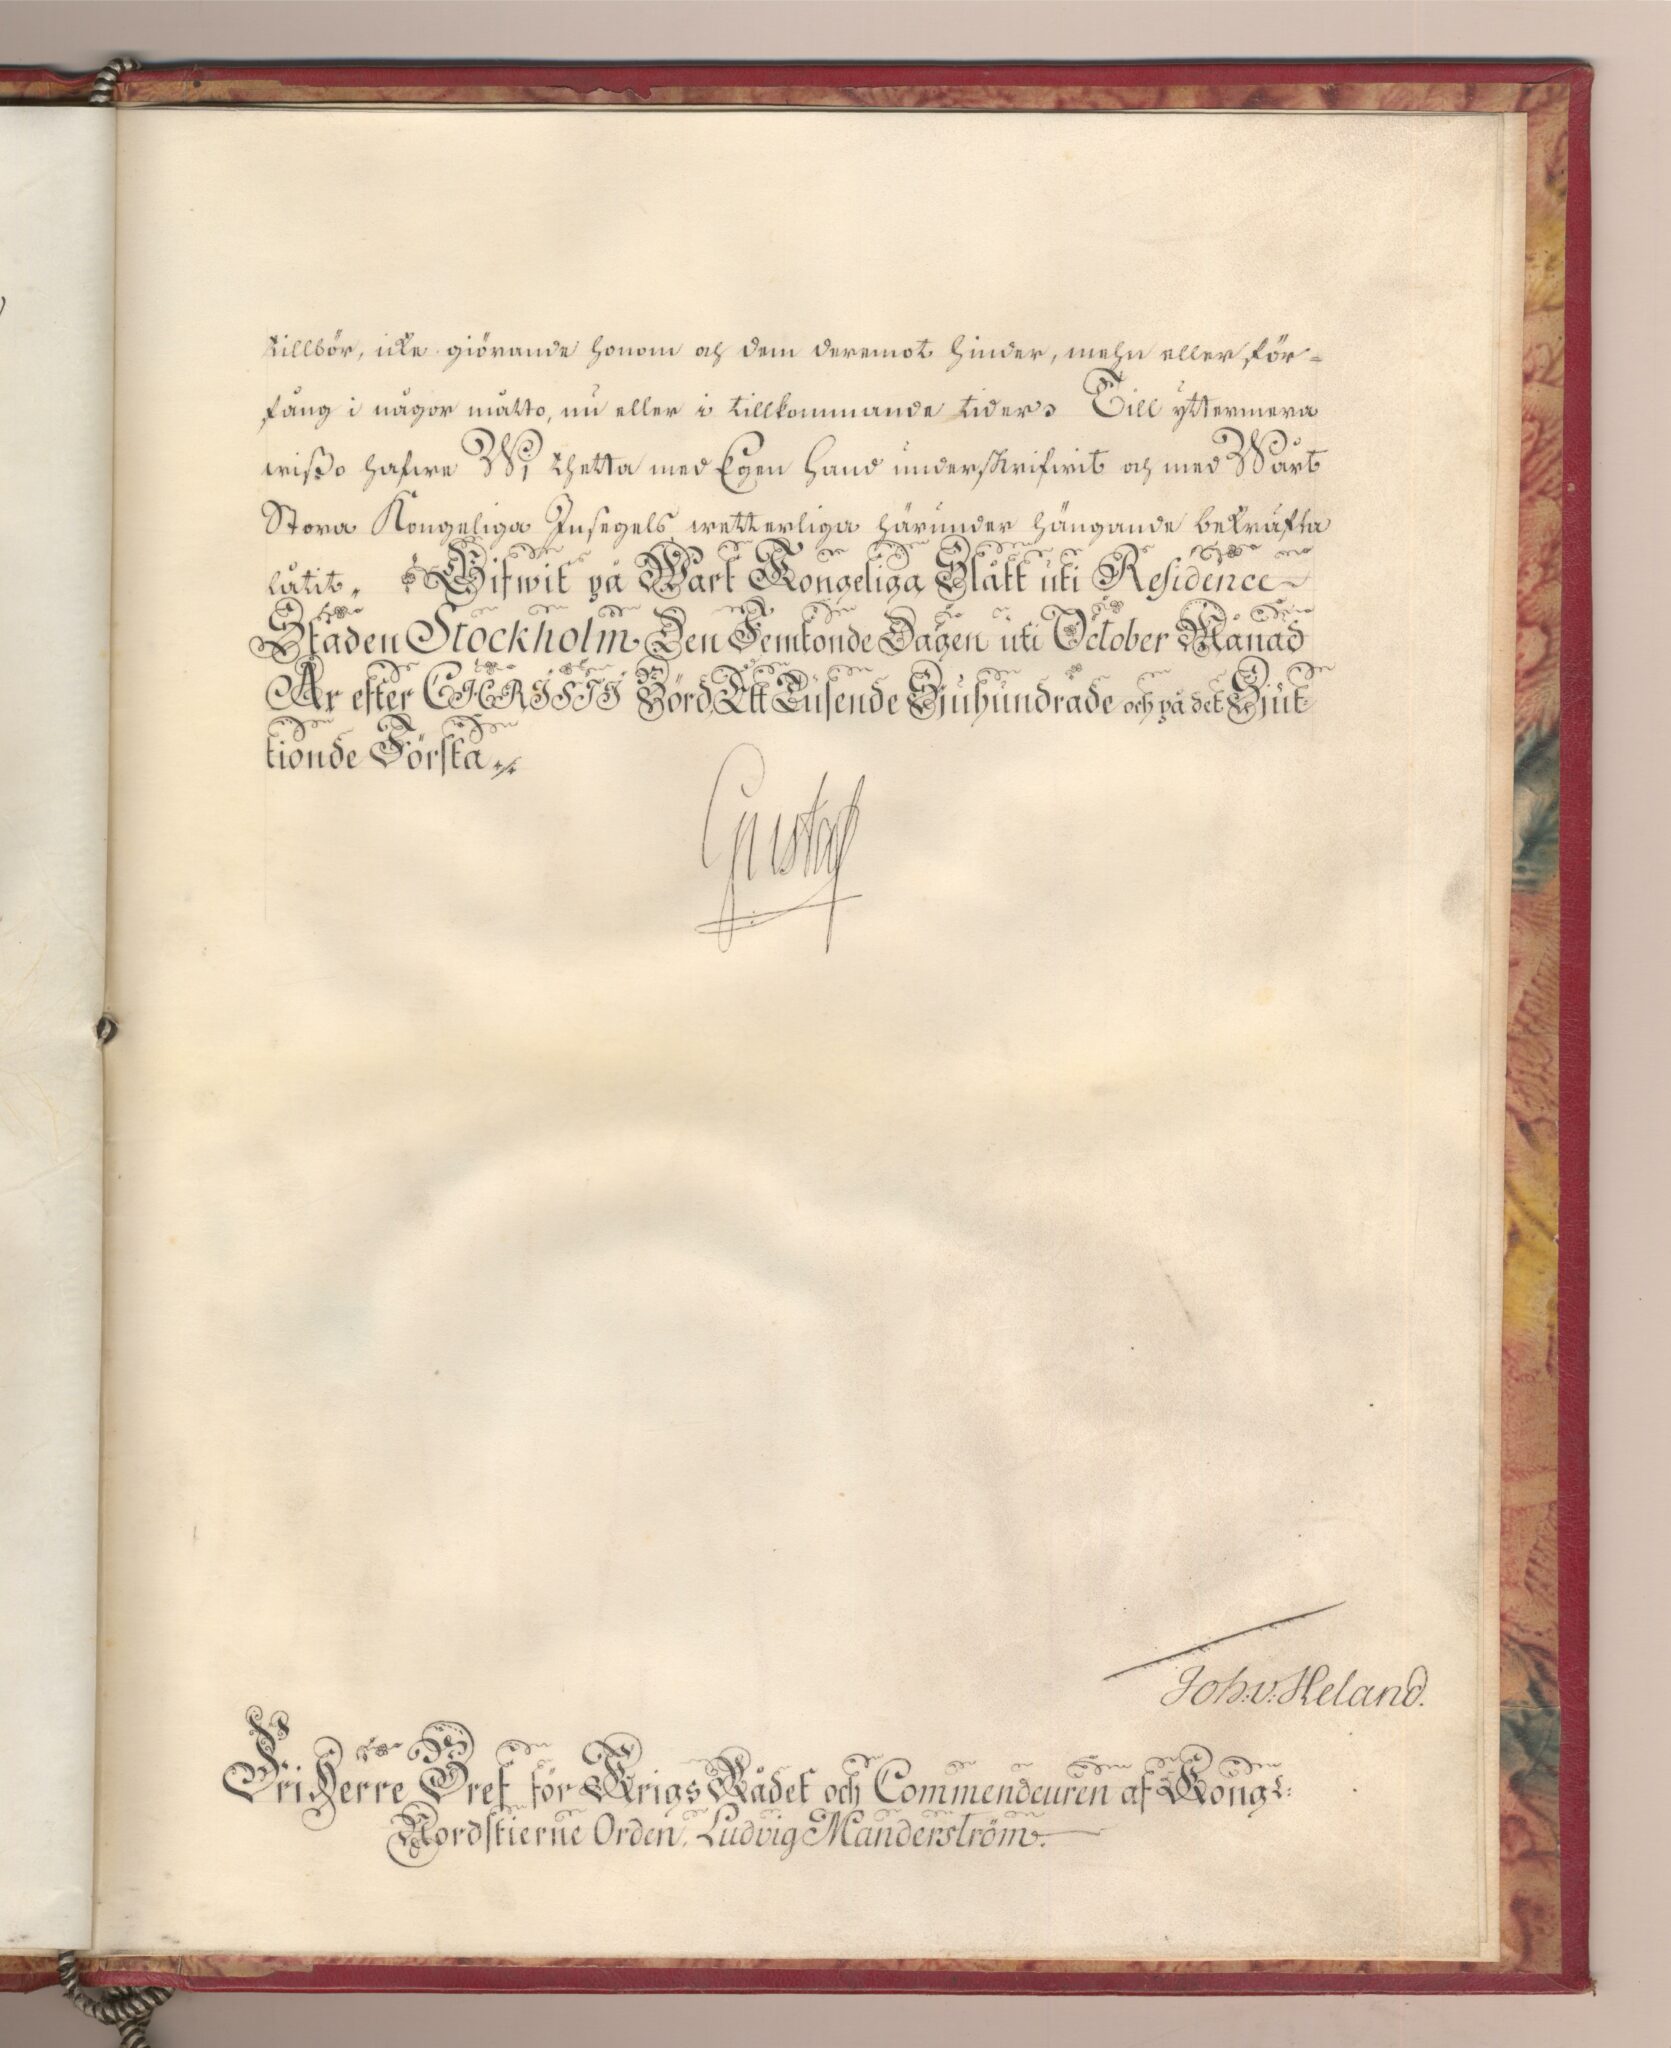 tillbör, icke giörande honom och dem deremot hinder, mehn eller för-
fång i någor måtto, nu eller i tillkommande tider. Till yttermera
wißo hafwe Wi thetta med Egen Hand underskrifwit och med Wårt
Stora Kongeliga Insegels wetterliga härunder hängande bekräfta
låtit. Gifwit på Wart Kongeliga Slått uti Residence-
Staden Stockholm Den Femtonde Dagen uti October Månad
År efter CHRISTI Börd, Ett Tusende Sjuhundrade och på det Sjut-
tionde Första
Gustaf
Joh: v: Heland.
Fri Herre Bref för Krigs Rådet och Commendeuren af Kongl:
Nordstierne Orden, Ludvig Manderström.